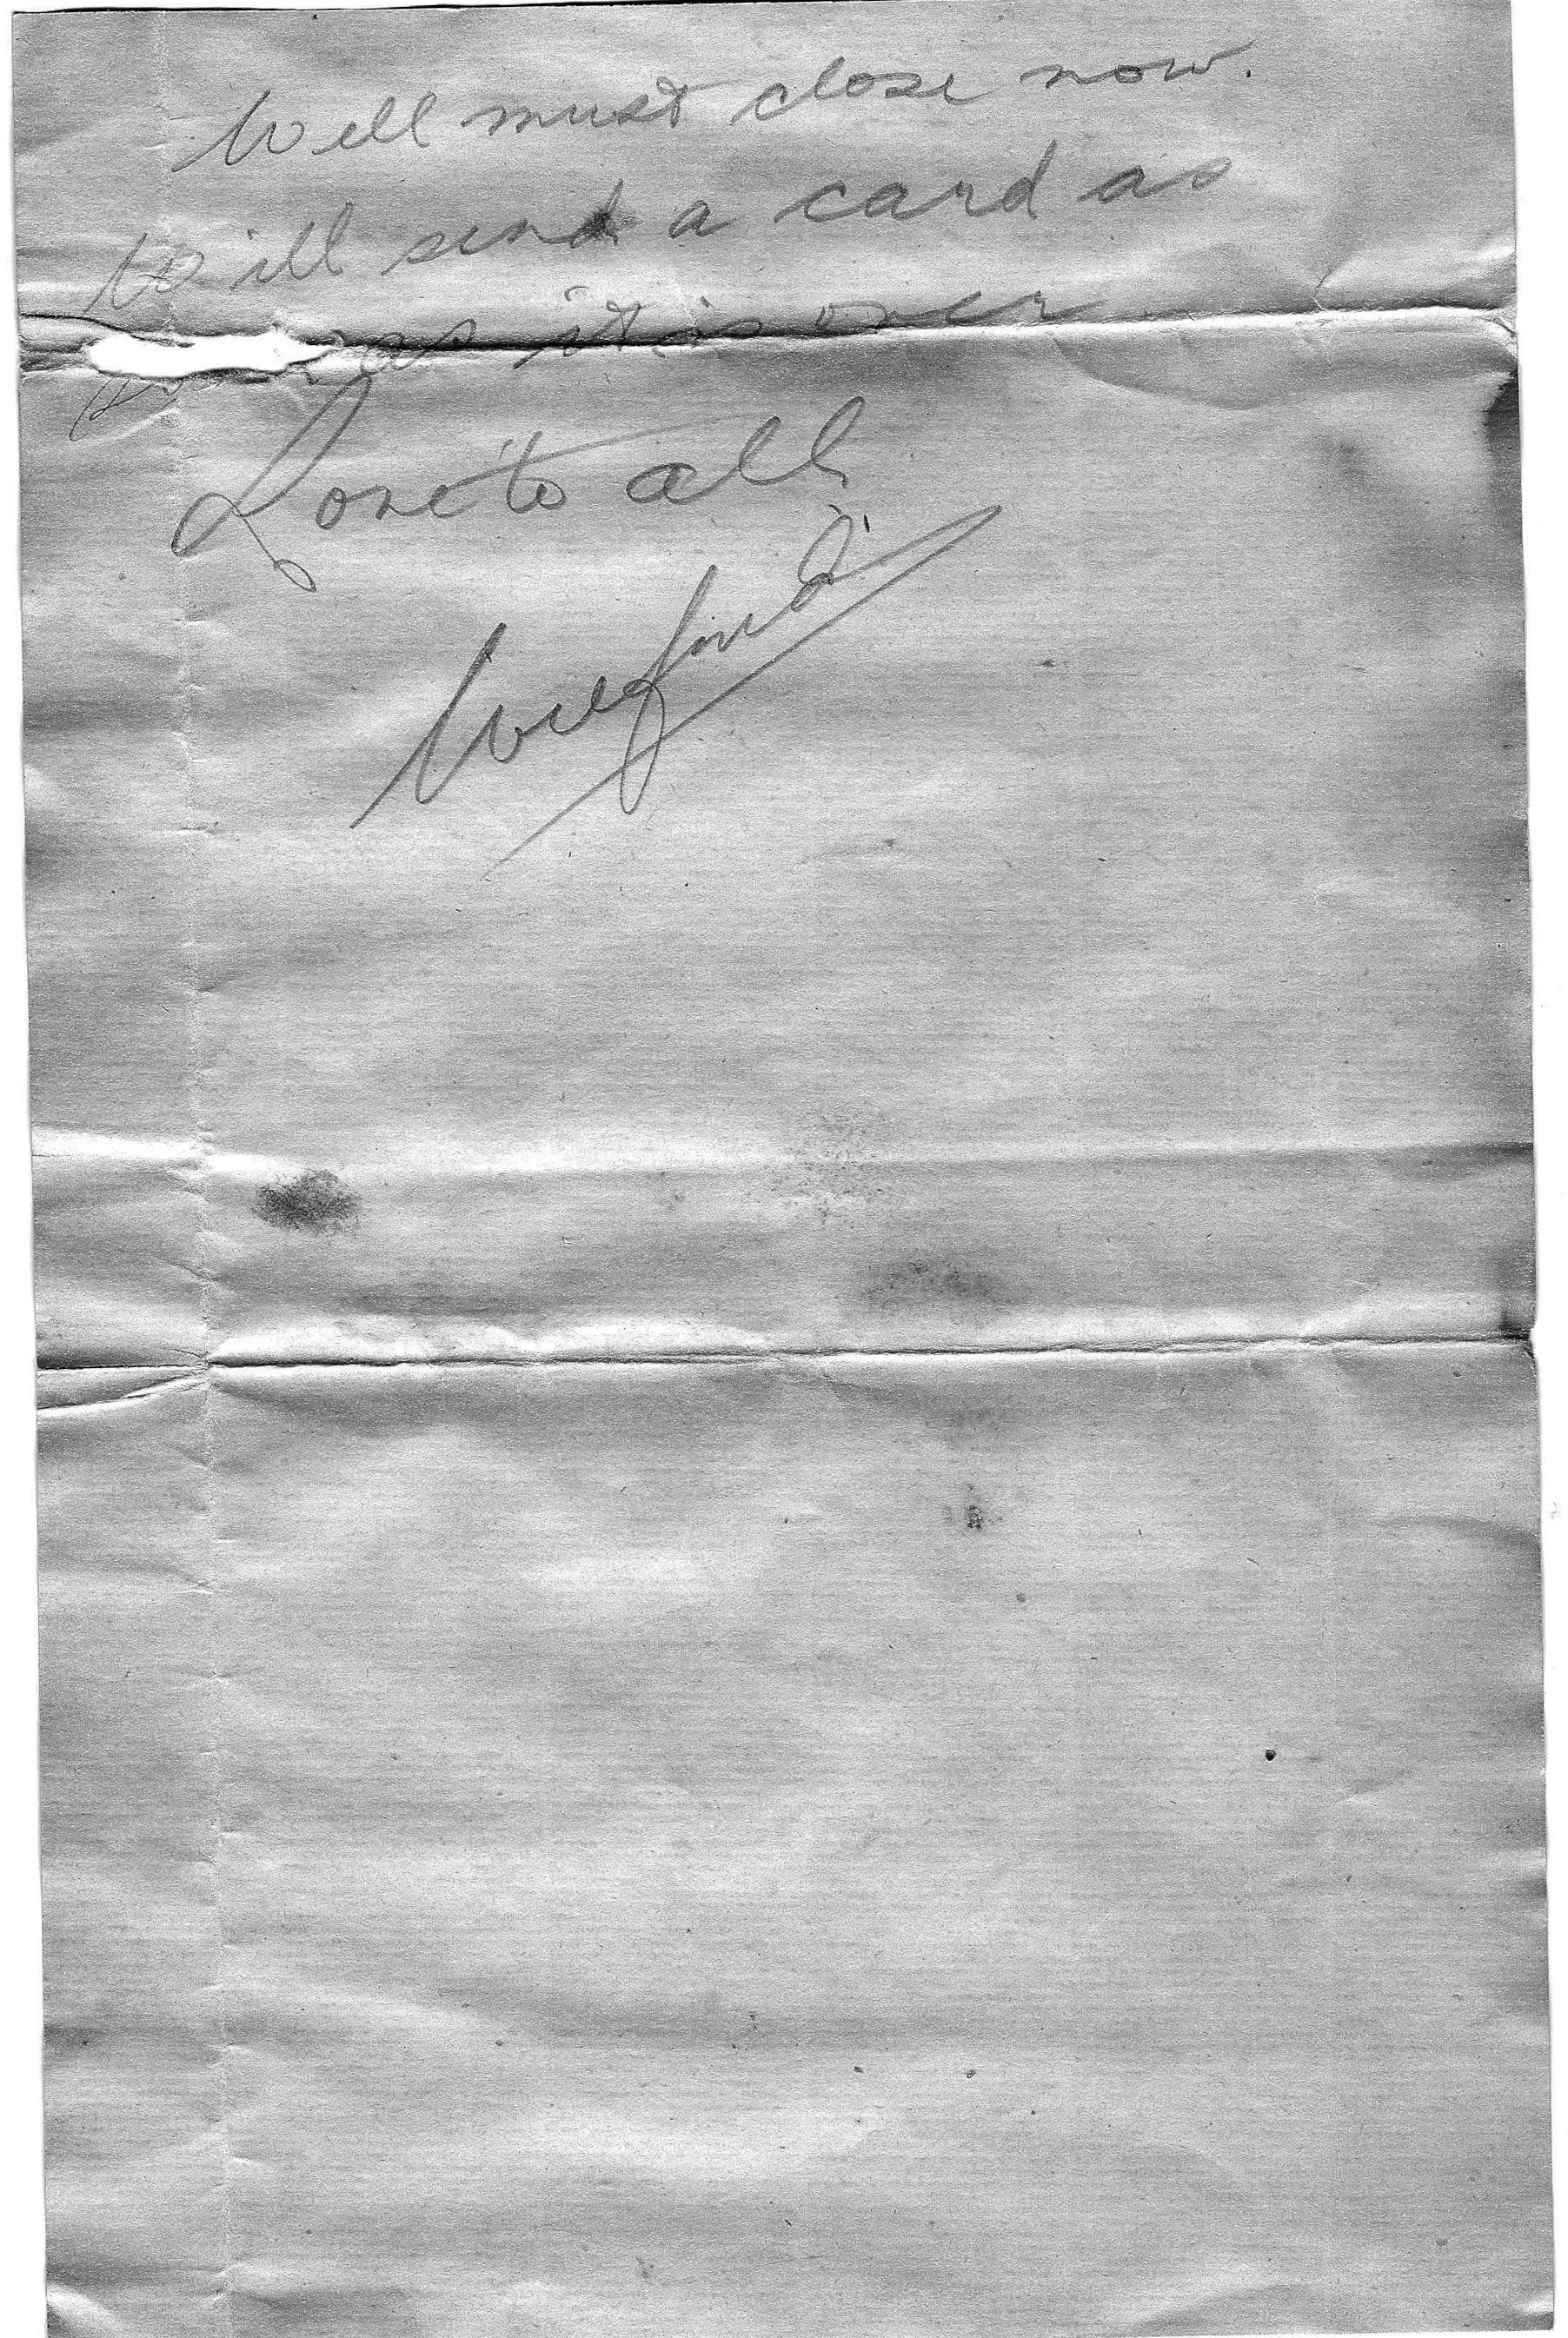 Well must close now.
Will send a card as
as it is over
Love to all
Wilfred